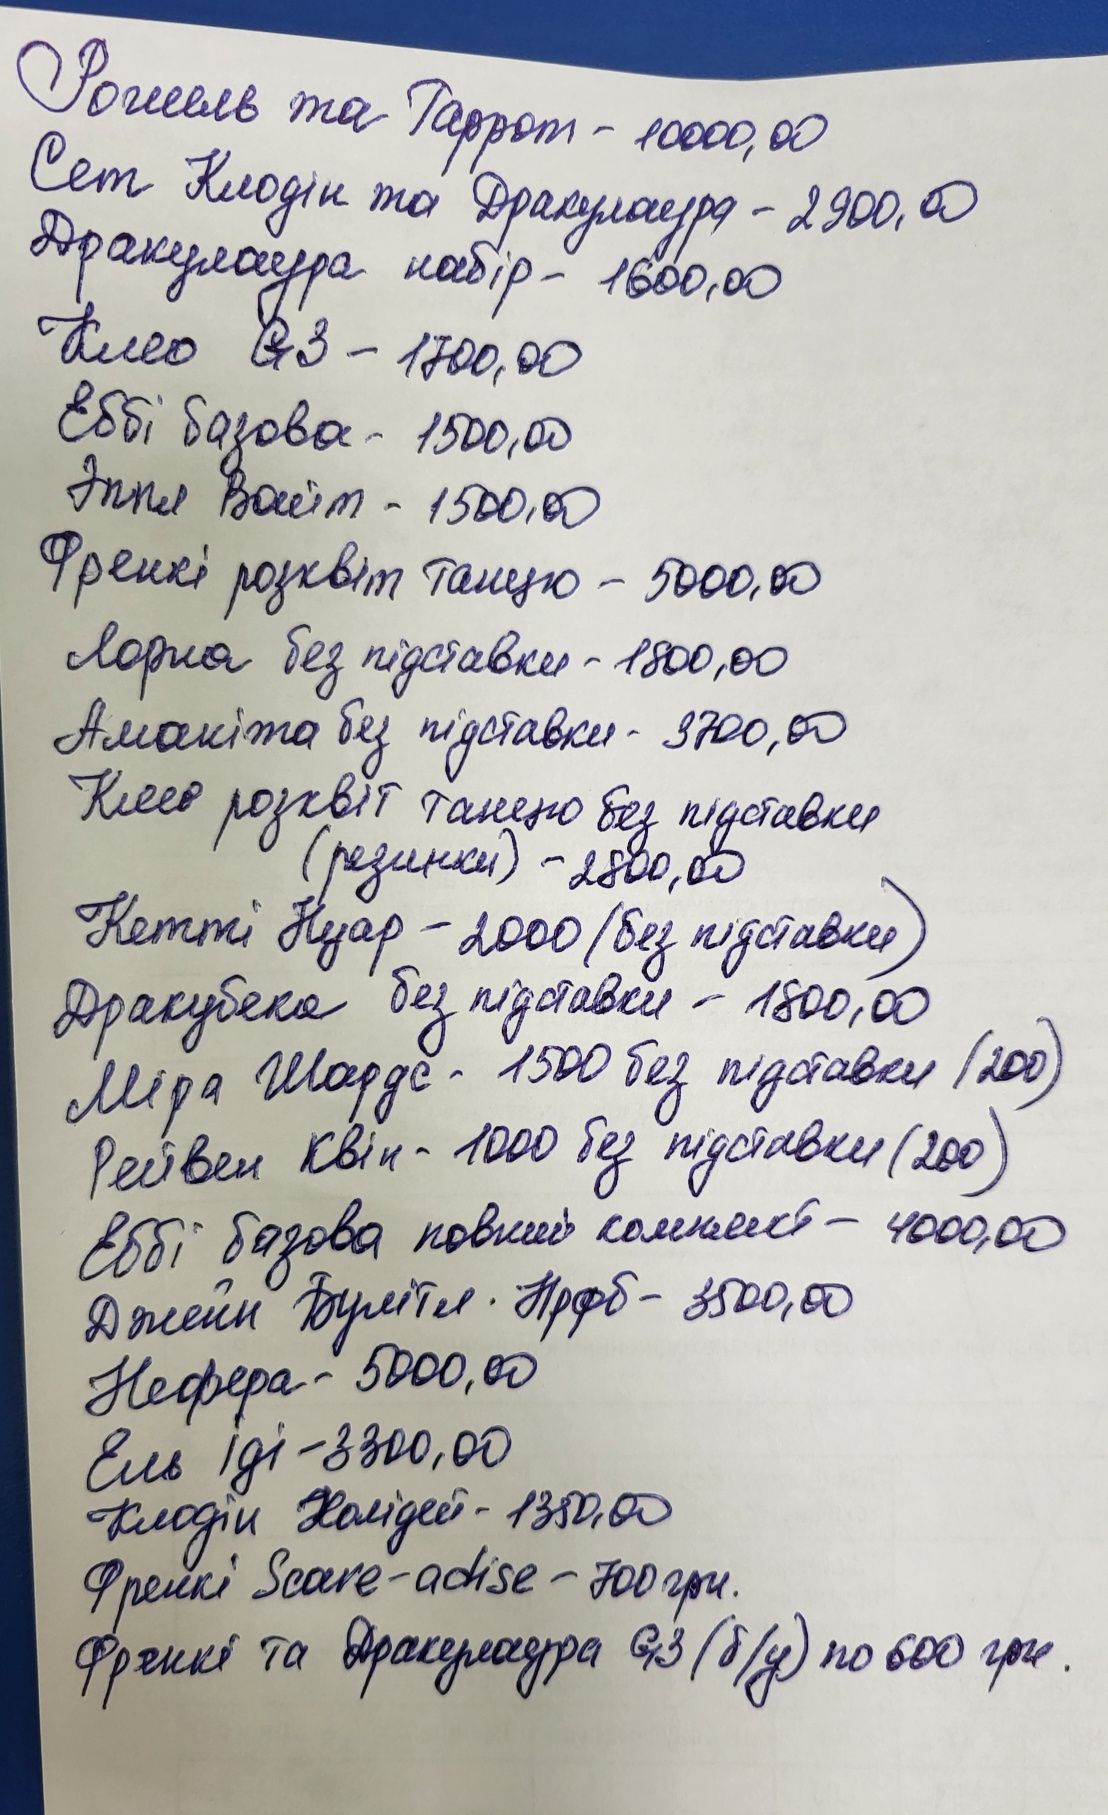 Рошель та Гаррот - 10000,00
Сет Клодін та Дракулаура - 2900,00
Дракулаура набір - 1600,00
Клео G3 - 1700,00
Еббі базова - 1500,00
Эппл Вайт - 1500,00
Френкі розквіт танцю - 5000,00
Лорна без підставки - 1800,00
Аманіта без підставки - 3700,00
Клео розквіт танцю без підставки
(резинки) - 2800,00
Кетті Нуар - 2000 (без підставки)
Дракубека без підставки - 1800,00
Міра Шардс - 1500 без підставки (200)
Рейвен Квін - 1000 без підставки (200)
Еббі базова повний комплект - 4000,00
Джейн Булітл. Нрфб - 3500,00
Нефера - 5000,00
Ель Іді - 3300,00
Клодін Холідей - 1350,00
Френкі Scare-adise - 700 грн.
Френкі та Дракулаура G3 (б/у) по 600 грн.